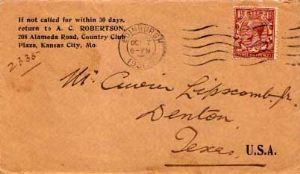 If not called for within 30 days,
return to A. C. ROBERTSON,
208 Alameda Road, Country Club
Plaza, Kansas City, Mo
EDINBURGH
Mr. Lipscomb Jr.
Denton
Texas, U.S.A.